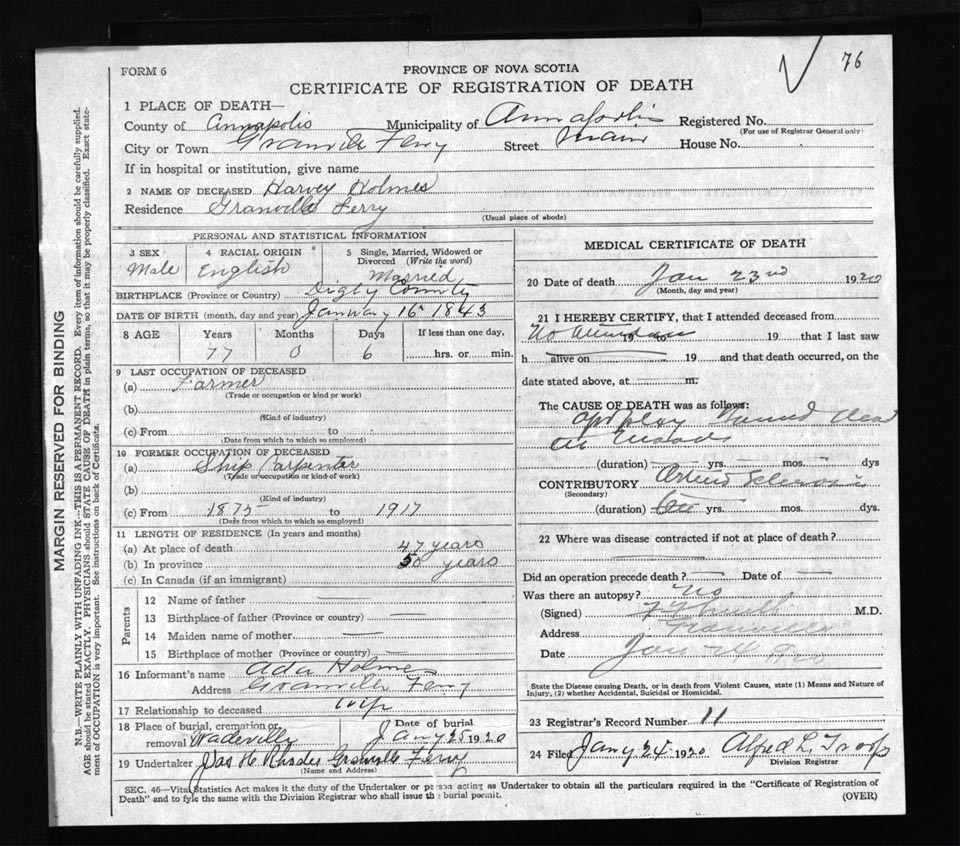 76
FORM 6
PROVINCE OF NOVA SCOTIA
CERTIFICATE OF REGISTRATION OF DEATH
1 PLACE OF DEATH—
County of Annapolis Municipality of Annapolis Registered No.
(For use of Registrar General only)
City or Town Granville Ferry Street Main House No.
If in hospital or institution, give name
2 NAME OF DECEASED Harvey Holmes
Residence Granville Ferry
(Usual place of abode)
PERSONAL AND STATISTICAL INFORMATION
3 SEX 4 RACIAL ORIGIN 5 Single, Married, Widowed or
Divorced (Write the word)
Male English Married
BIRTHPLACE (Province or Country) Digby County
DATE OF BIRTH (month, day and year) January 16 1843
8 AGE Years Months Days If less than one day,
77 0 6 hrs. or min.
9 LAST OCCUPATION OF DECEASED
(a) Farmer
(Trade or occupation or kind or work)
(b)
(Kind of industry)
(c) From to
(Date from which to which so employed)
10 FORMER OCCUPATION OF DECEASED
(a) Ship Carpenter
(Trade or occupation or kind of work)
(b)
(Kind of industry)
(c) From 1875 to 1917
(Date from which to which so employed)
11 LENGTH OF RESIDENCE (In years and months)
(a) At place of death 47 years
(b) In province 50 years
(c) In Canada (if an immigrant)
Parents
12 Name of father —
13 Birthplace of father (Province or country) —
14 Maiden name of mother —
15 Birthplace of mother (Province or country) —
16 Informant's name Ada Holmes
Address Granville Ferry
17 Relationship to deceased Wife
18 Place of burial, cremation or Date of burial
removal Wadeville Jany 25 1920
19 Undertaker Jas H Rhodes Granville Ferry
(Name and Address)
MEDICAL CERTIFICATE OF DEATH
20 Date of death Jan 23rd 1920
(Month, day and year)
21 I HEREBY CERTIFY, that I attended deceased from
No 19 to 19 that I last saw
h alive on 19 and that death occurred, on the
date stated above, at m.
The CAUSE OF DEATH was as follows:
Apoplexy Found dead
(duration) yrs. mos. dys
CONTRIBUTORY Arterio Sclerosis
(Secondary)
(duration) yrs. mos. dys.
22 Where was disease contracted if not at place of death?
Did an operation precede death? — Date of —
Was there an autopsy? No
(Signed) M.D.
Address Granville
Date Jan 24 1920
State the Disease causing Death, or in death from Violent Causes, state (1) Means and Nature of
Injury, (2) whether Accidental, Suicidal or Homicidal.
23 Registrar's Record Number 11
24 Filed Jany 24 1920 Alfred L. Troop
Division Registrar
SEC. 46—Vital Statistics Act makes it the duty of the Undertaker or person acting as Undertaker to obtain all the particulars required in the "Certificate of Registration of
Death" and to fyle the same with the Division Registrar who shall issue the burial permit.
(OVER)
MARGIN RESERVED FOR BINDING
N.B.—WRITE PLAINLY WITH UNFADING INK—THIS IS A PERMANENT RECORD. Every item of information should be carefully supplied.
AGE should be stated EXACTLY. PHYSICIANS should STATE CAUSE OF DEATH in plain terms, so that it may be properly classified. Exact state-
ment of OCCUPATION is very important. See instructions on back of Certificate.